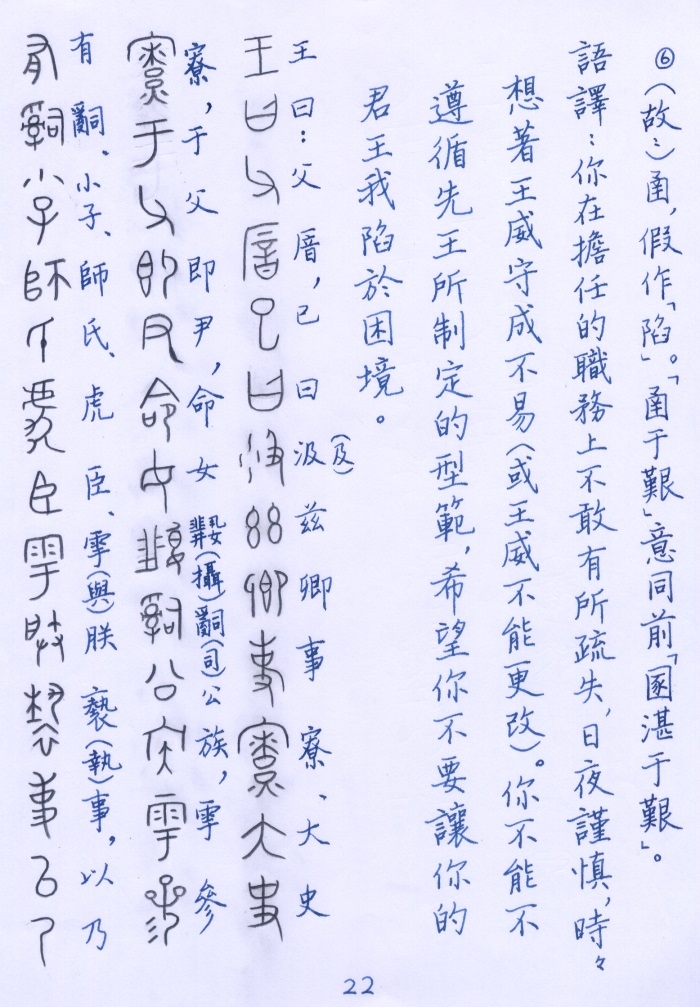 ⑥(故:)圅,假作「陷」。「圅于艱」意同前「圂湛于艱」。
語譯:你在擔任的職務上不敢有所疏失,日夜謹慎,時々
想著王威守成不易(或王威不能更改)。你不能不
遵循先王所制定的型範,希望你不要讓你的
君王我陷於困境。
王曰:父厝,已曰汲(及)茲卿事寮、大史
寮,于父即尹,命女(攝)嗣(司)公族,雩參
有嗣、小子、師氏、虎臣、雩(與)朕褻(執)事,以乃
22